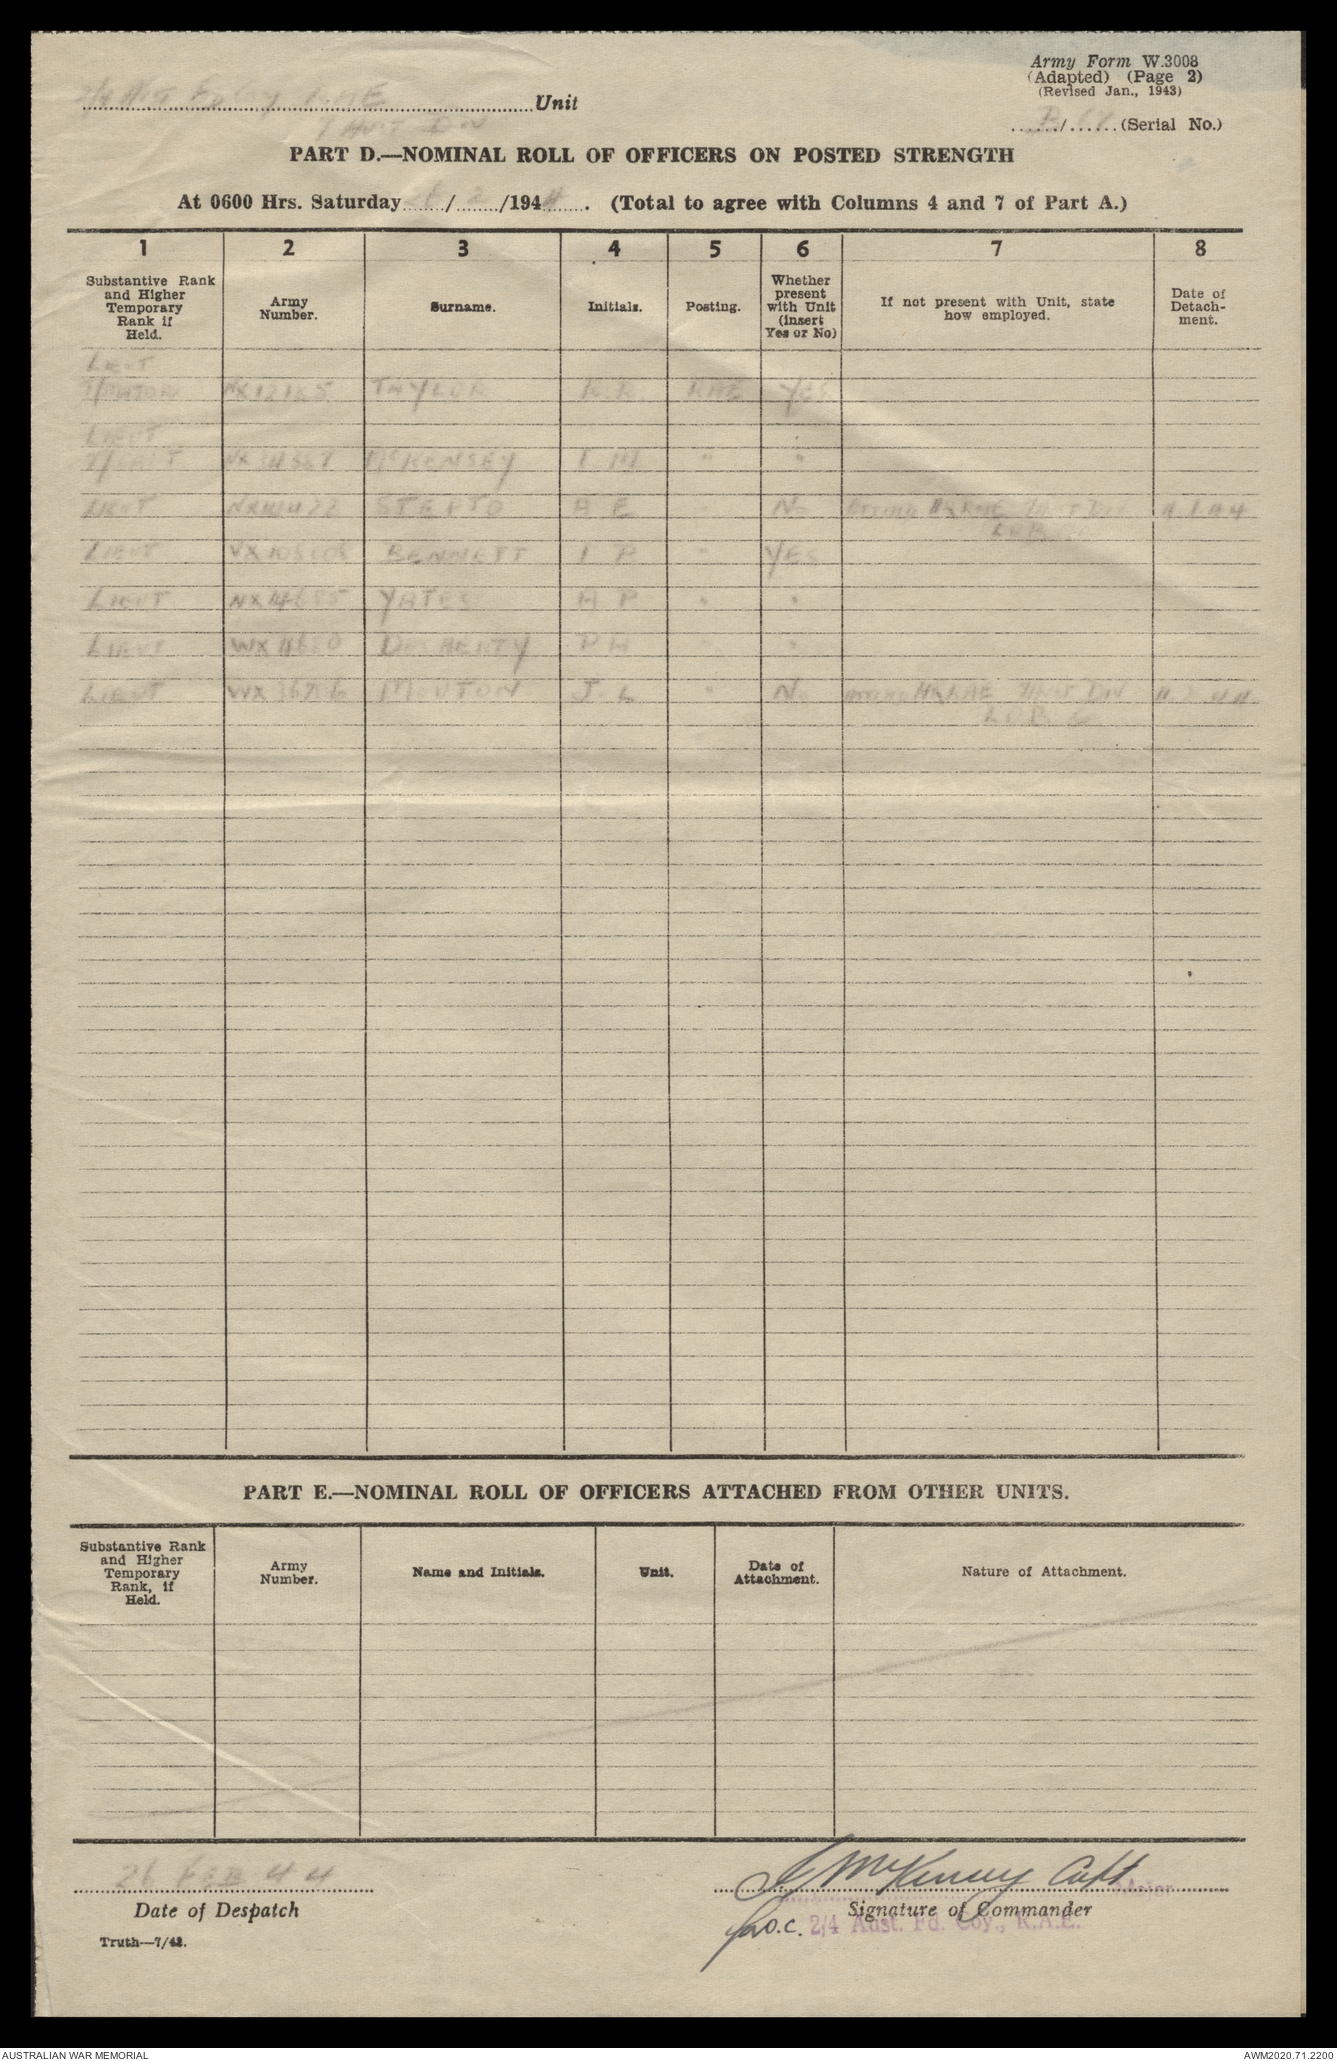 Army Form W.3008
(Adapted) (Page 2)
(Revised Jan., 1943)
2/4 Aust Fd Coy RAE Unit
7 Aust Div
....../......(Serial No.)
PART D.—NOMINAL ROLL OF OFFICERS ON POSTED STRENGTH
At 0600 Hrs. Saturday 26/2/1944. (Total to agree with Columns 4 and 7 of Part A.)
1 2 3 4 5 6 7 8
Substantive Rank and Higher Temporary Rank if Held. Army Number. Surname. Initials. Posting. Whether present with Unit (insert Yes or No) If not present with Unit, state how employed. Date of Detachment.
LIEUT
T/MAJOR NX12165 TAYLOR R.R. RAE YES
LIEUT
T/CAPT McKENSEY I M " "
LIEUT STEPTO A E " No HQ RAE 7 AUST DIV
LOB
LIEUT BENNETT I P " YES
LIEUT YATES A P " "
LIEUT DOCHERTY P H " "
LIEUT MOUTON J. L " No HQ RAE 7 AUST DIV
LOB
PART E.—NOMINAL ROLL OF OFFICERS ATTACHED FROM OTHER UNITS.
Substantive Rank and Higher Temporary Rank, if Held. Army Number. Name and Initials. Unit. Date of Attachment. Nature of Attachment.
26 FEB 44
McKensey Capt
Major
Date of Despatch
Signature of Commander
for O.C. 2/4 Aust. Fd. Coy., R.A.E.
Truth—7/43.
AUSTRALIAN WAR MEMORIAL
AWM2020.71.2200